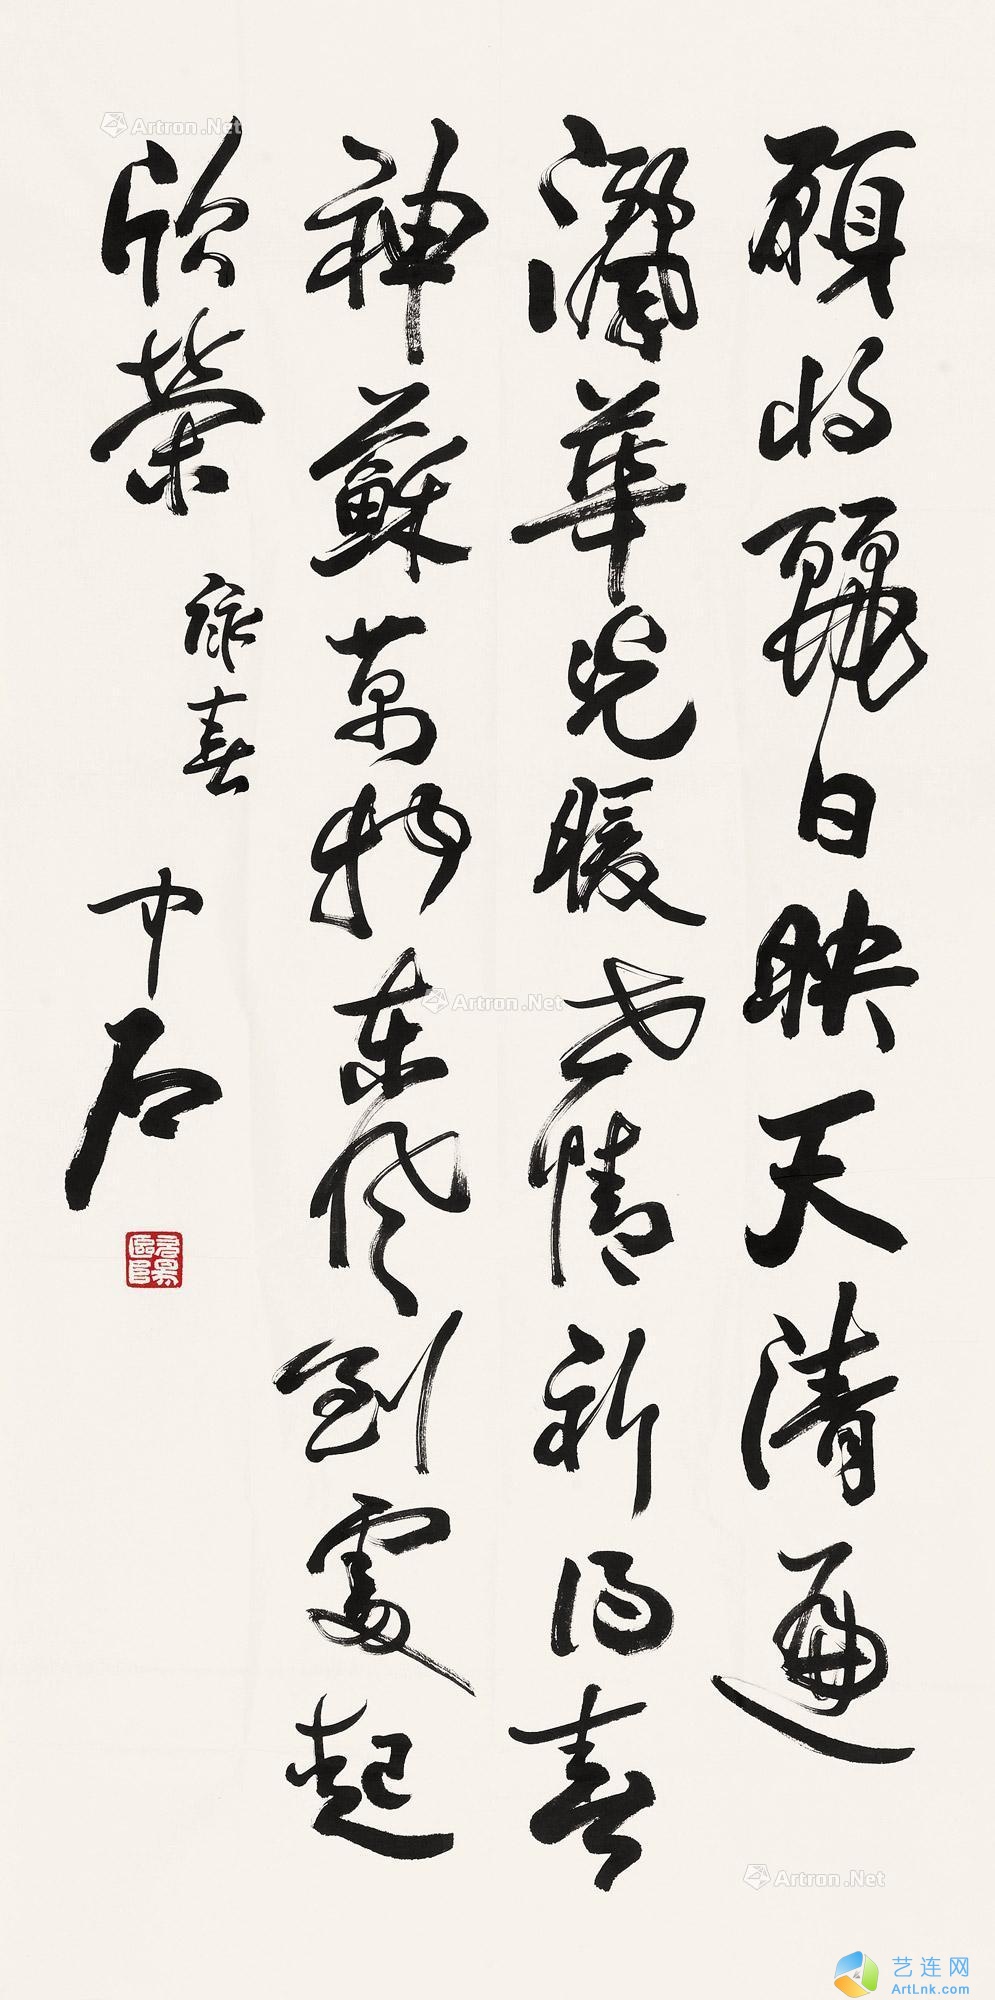 願将麗日映天清遍
灑華光暖世情祈得春
神蘇萬物東風到處起
欣榮
詠春
中石
Artron.Net
Artron.Net
Artron.Net
艺连网
ArtLnk.com